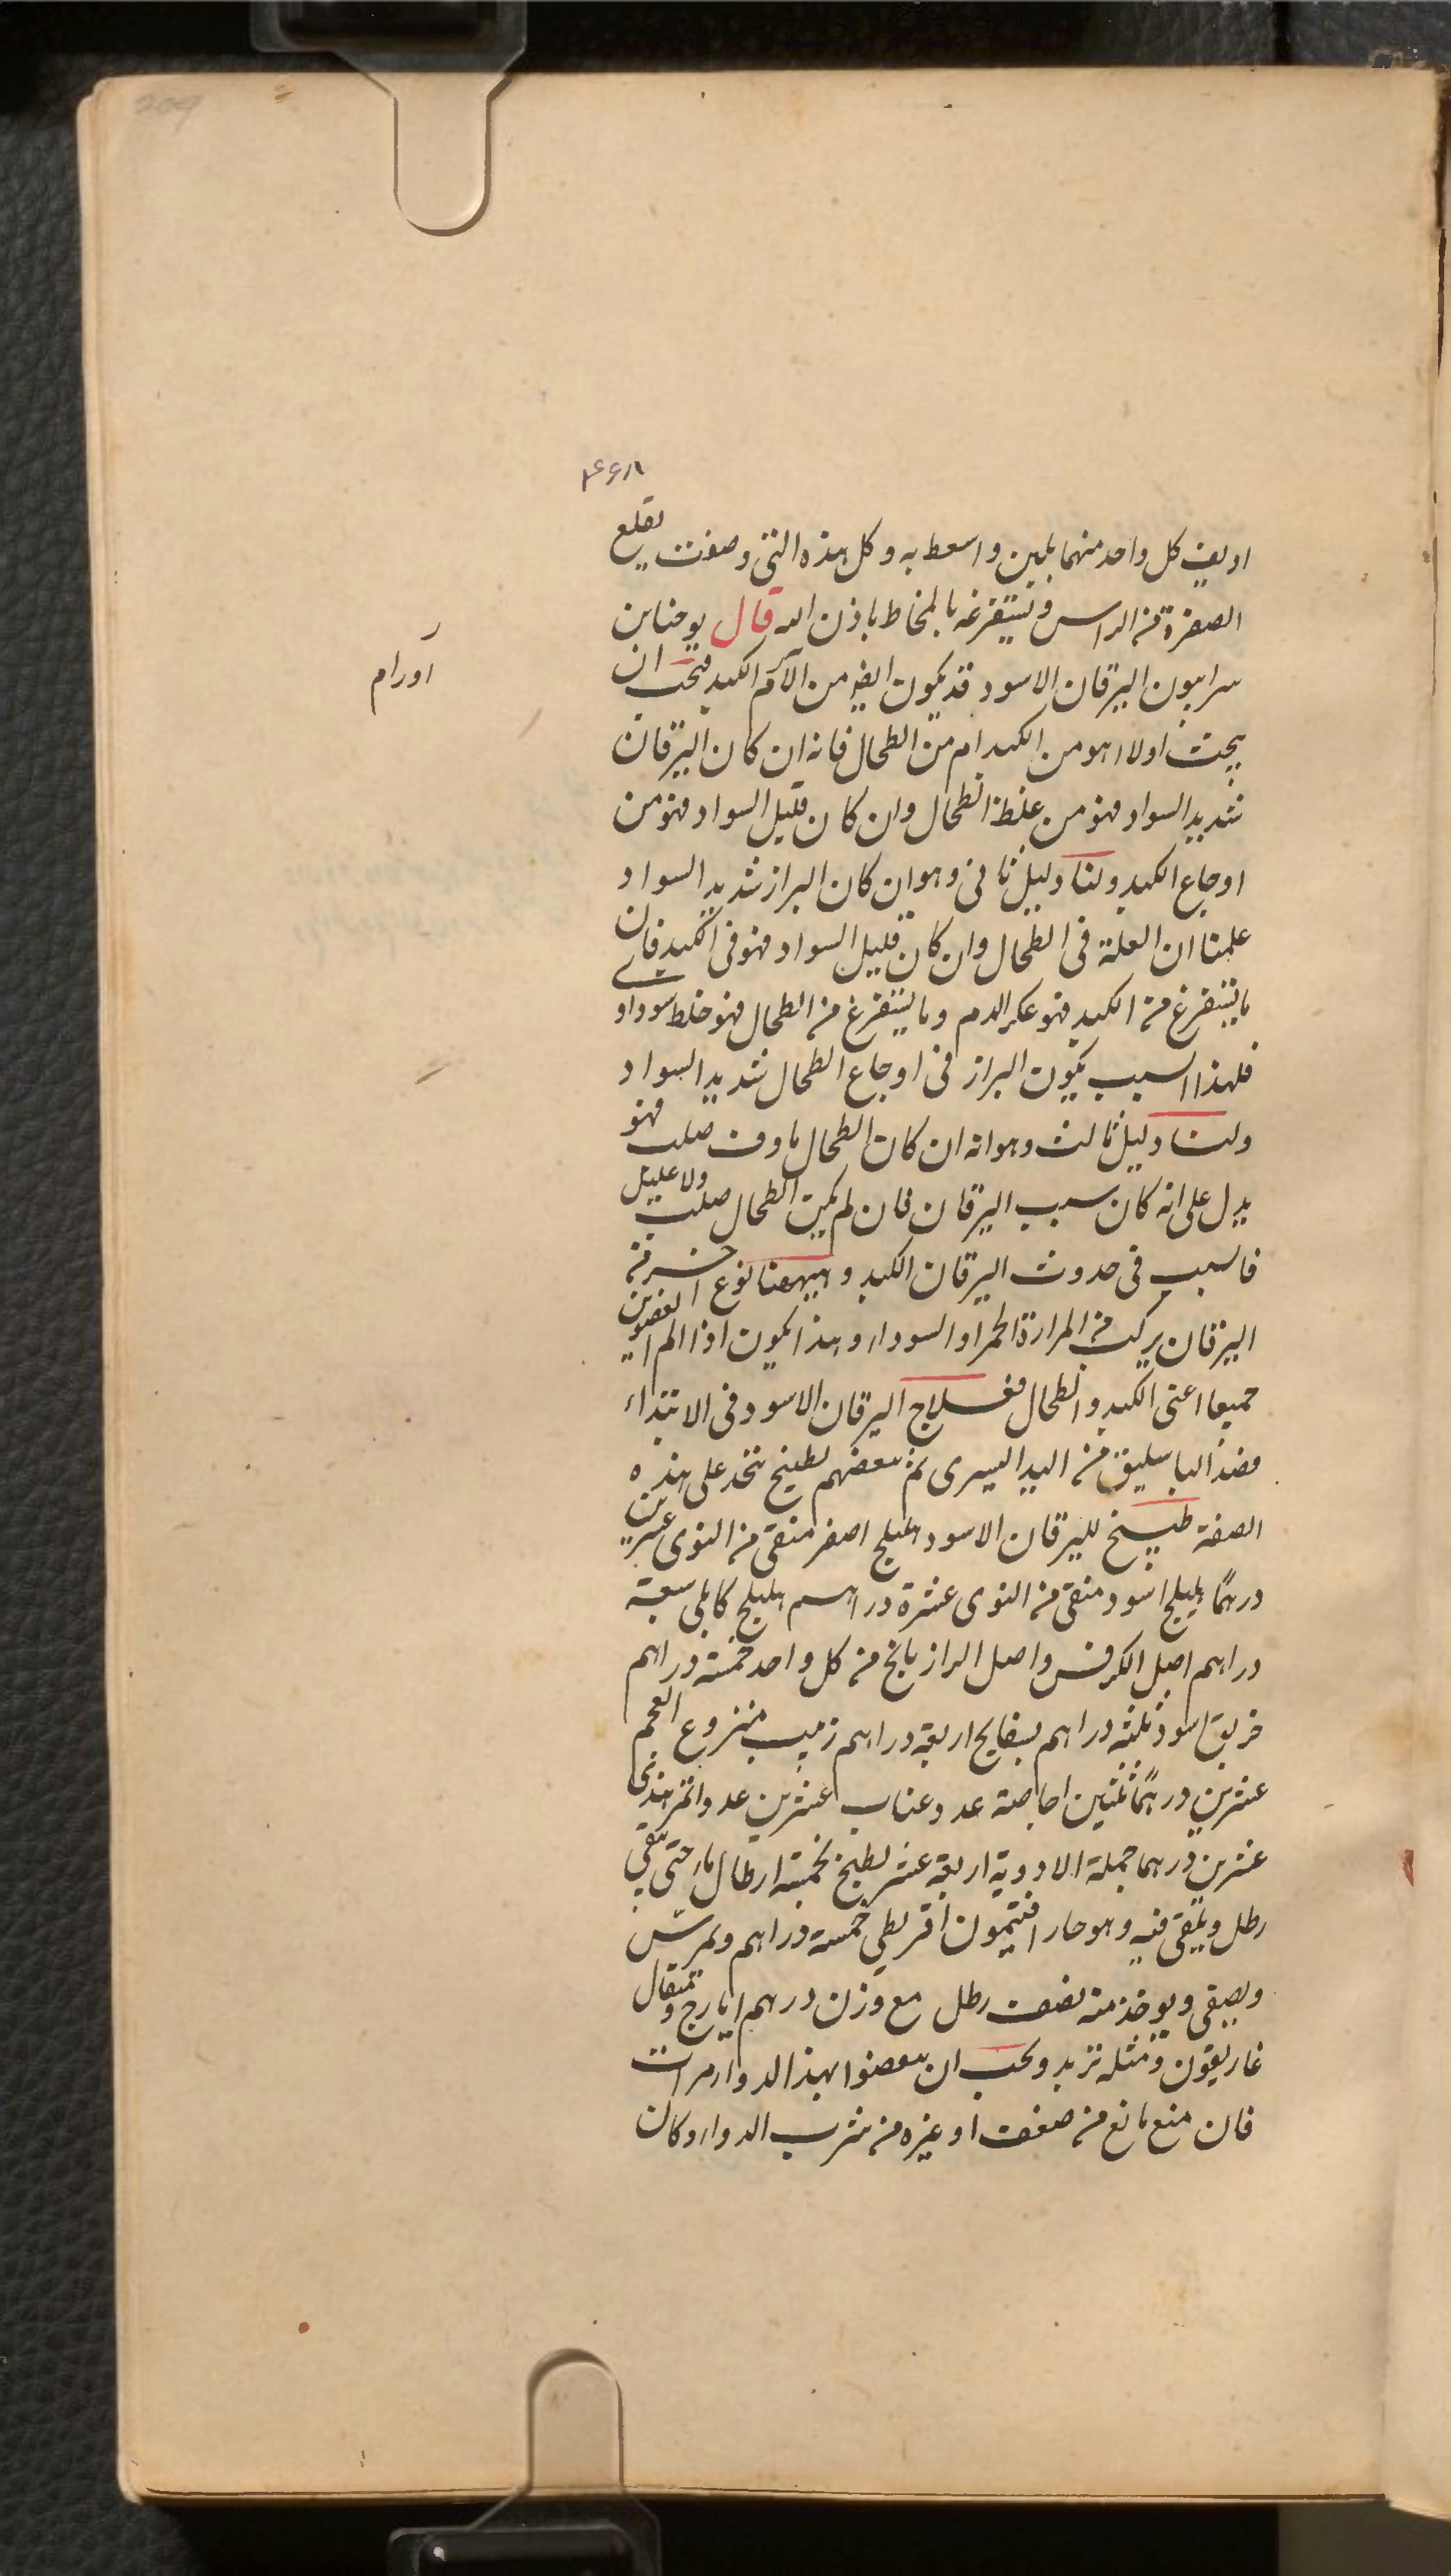 209
۴۶۸
او يديف كل واحد منهما بلبن واسعط به وكل هذه التى وصفت يقلع
الصفرة من الراس ويستفرغه بالمخاط باذن الله قال يوحنا بن
سرابيون اليرقان الاسود قد يكون ايضا من آلام الكبد فيجب ان
اورام
يبحث اولا اهو من الكبد ام من الطحال فانه ان كان اليرقان
شديد السواد فهو من غلظ الطحال وان كان قليل السواد فهو من
اوجاع الكبد ولنا دليل ثانى وهو ان كان البراز شديد السواد
علمنا ان العلة فى الطحال وان كان قليل السواد فهو فى الكبد فان
ما يستفرغ من الكبد فهو عكر الدم وما يستفرغ من الطحال فهو خلط سوداوى
فلهذا السبب يكون البراز فى اوجاع الطحال شديد السواد
ولنا دليل ثالث وهو انه ان كان الطحال ماوف صلب فهو
يدل على انه كان سبب اليرقان فان لم يكن الطحال صلب ولا عليل
فالسبب فى حدوث اليرقان الكبد وهيهنا نوع اخر من
اليرقان يركب من المرارة الحمرا والسوداء وهذا يكون اذا الم العضوين
جميعا اعنى الكبد والطحال فعلاج اليرقان الاسود فى الابتداء
فصد الباسليق من اليد اليسرى ثم بعضهم بطبيخ يتخذ على هذه
الصفة طبيخ لليرقان الاسود هليلج اصفر منقى من النوى عشرين
درهمًا هليلج اسود منقى من النوى عشرة دراهم هليلج كابلى سبعة
دراهم اصل الكرفس واصل الرازيانج من كل واحد خمسة دراهم
خربق اسود ثلثة دراهم بسفايج اربعة دراهم زبيب منزوع العجم
عشرين درهمًا ثلثين اجاصة عدد وعناب عشرين عددا تمر هندى
عشرين درهما جملة الادوية اربعة عشر يطبخ بخمسة ارطال ماء حتى يبقى
رطل ويلقى فيه وهو حار افتيمون اقريطى خمسة دراهم ويمرس
ويصفى ويوخذ منه نصف رطل مع وزن درهم ايارج ومثقال
غاريقون ومثله تربد ويجب ان ينفضوا بهذا الدواء مرات
فان منع مانع من ضعف او غيره من شرب الدواء وكان